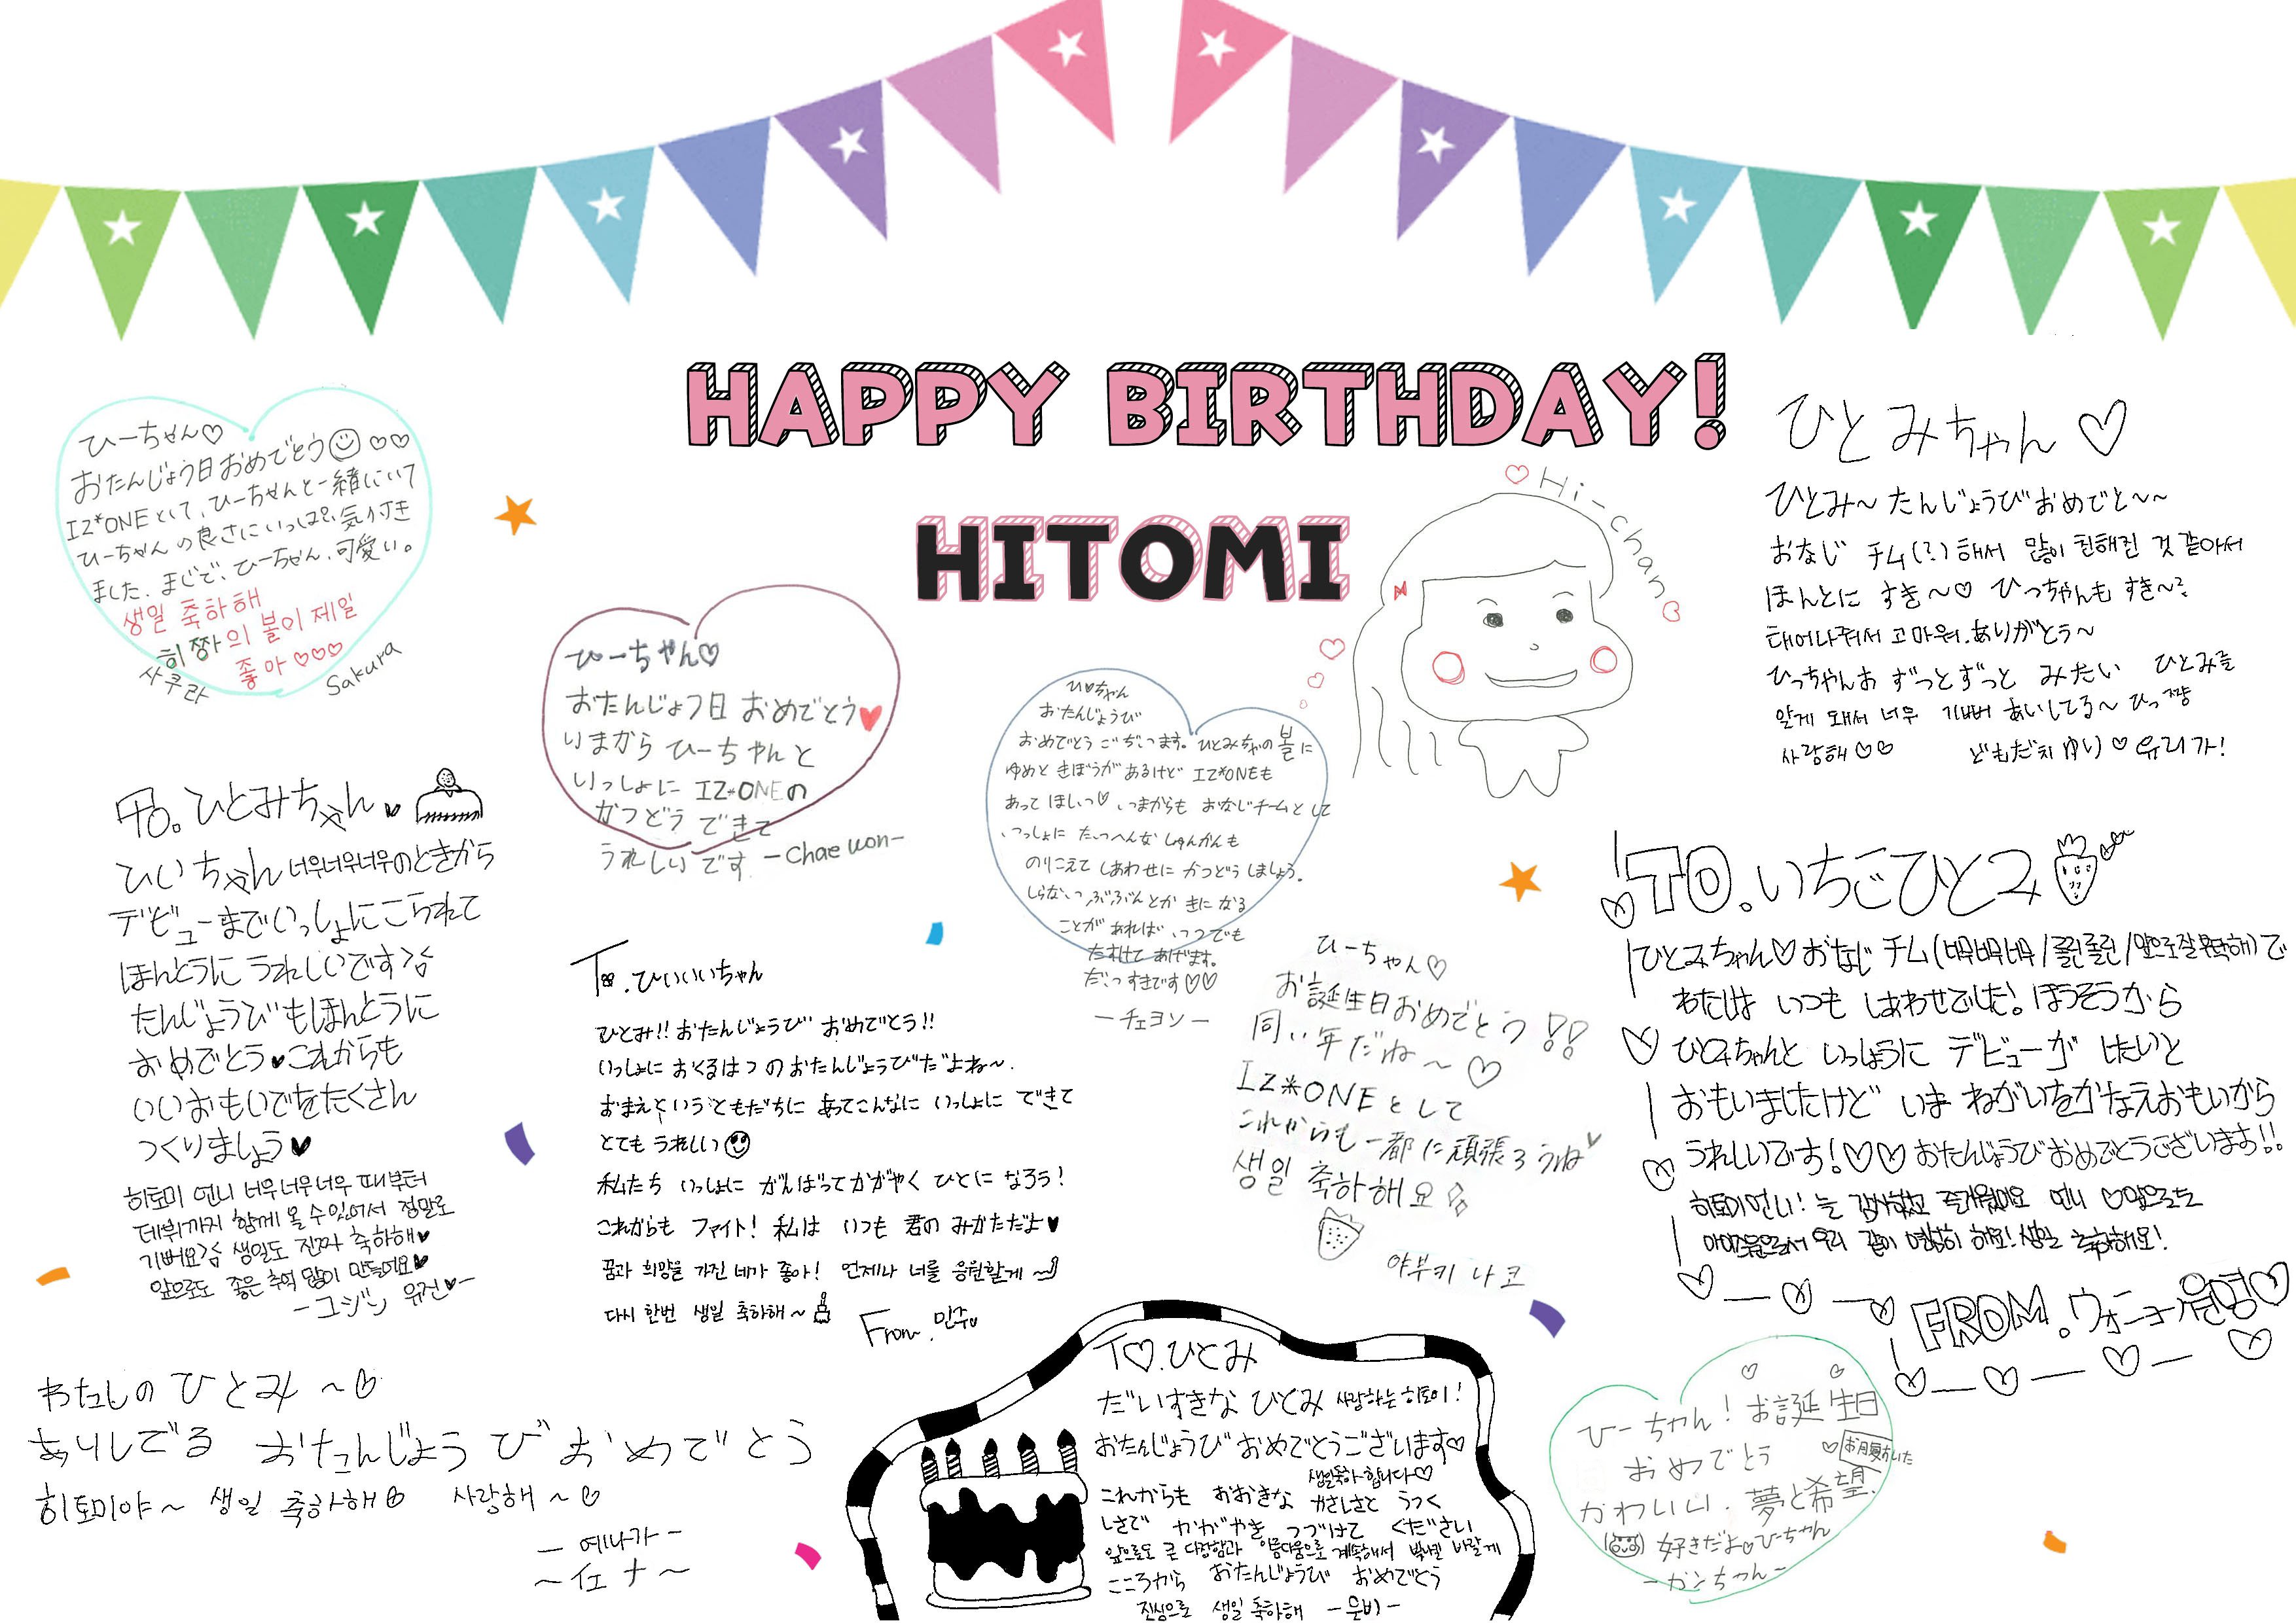 HAPPY BIRTHDAY!
HITOMI
ひーちゃん♡
おたんじょう日おめでとう☺♡♡
IZ*ONEとして、ひーちゃんと一緒にいて
ひーちゃんの良さにいっぱい気付き
ました。まじで、ひーちゃん、可愛い。
생일 축하해
히짱의 볼이 제일
좋아♡♡♡
사쿠라
Sakura
ひーちゃん♡
おたんじょう日 おめでとう♥
いまから ひーちゃんと
いっしょに IZ*ONEの
かつどう できて
うれしいです -Chaewon-
ひ♡ちゃん
おたんじょうび
おめでとう ございます。ひとみちゃの 볼に
ゆめと きぼうが あるけど IZ*ONEも
あって ほしい♡ いまからも おなじチームとして
いっしょに たいへんな しゅんかんも
のりこえて しあわせに かつどう しましょう。
しらない ぶぶんとか きに なる
ことが あれば いつでも
たすけて あげます。
だいすきです♡♡
ーチェヨンー
♡Hi-chan♡
ひとみちゃん♡
ひとみ~ たんじょうび おめでと~~
おなじ チム(?)해서 많이 친해진 것 같아서
ほんとに すき~♡ ひっちゃんも すき~?
태어나줘서 고마워. ありがとう~
ひっちゃんお ずっとずっと みたい ひとみを
알게 돼서 너무 기뻐 あいしてる~ ひっ짱
사랑해♡♡ どもだち ゆり♡ 유리가!
To. ひとみちゃん♥
ひいちゃん 너무너무너무のときから
デビューまでいっしょにこられて
ほんとうに うれしいです
たんじょうびもほんとうに
おめでとう♥これからも
いいおもいでをたくさん
つくりましょう♥
히토미 언니 너무너무너무 때부터
데뷔까지 함께 올 수 있어서 정말로
기뻐요 생일도 진짜 축하해♥
앞으로도 좋은 추억 많이 만들어요♥
ーユジン 유진♥ー
To. ひいいいちゃん
ひとみ!! おたんじょうび おめでとう!!
いっしょに おくるはつ のおたんじょうびだよね~.
おまえというともだちに あってこんなに いっしょに できて
とても うれしい☺
私たち いっしょに がんばってかがやく ひとに なろう!
これからも ファイト! 私は いつも 君の みかただよ♥
꿈과 희망을 가진 네가 좋아! 언제나 너를 응원할게~
다시 한번 생일 축하해~
From. 민주
ひーちゃん♡
お誕生日おめでとう!!
同い年だね~♡
IZ*ONEとして
これからも一都に頑張ろうね
생일 축하해요
야부키 나코
TO. いちごひとみ
ひとみちゃん♡おなじ チム(내꺼야/롤린롤린/앞으로잘부탁해)で
わたしは いつも しあわせでした! ほうそうから
ひとみちゃんと いっしょうに デビューが したいと
おもいましたけど いま ねがいをかなえおもいから
うれしいです!♡♡ おたんじょうびおめでとうございます!!
히토미언니! 늘 감사했고 즐거웠어요 언니 ♡앞으로도
아이즈원으로서 우리 같이 열심히 해요! 생일 축하해요!
FROM. ウォニョン 원영♡
わたしの ひとみ ~♡
ありしてる おたんじょう び おめでとう
히토미야~ 생일 축하해♡ 사랑해~♡
ー 예나가 ー
~イェナ~
T♡.ひとみ
だいすきな ひとみ 사랑하는 히토미!
おたんじょうび おめでとうございます♡
생일축하 합니다♡
これからも おおきな やさしさと うつく
しさで かがやき つづけて ください
앞으로도 큰 다정함과 아름다움으로 계속해서 빛나길 바랄게
こころから おたんじょうび おめでとう
진심으로 생일 축하해 -은비-
ひーちゃん! お誕生日
おめでとう
かわいい、夢と希望、
好きだよ♡ひーちゃん
ーカンちゃんー